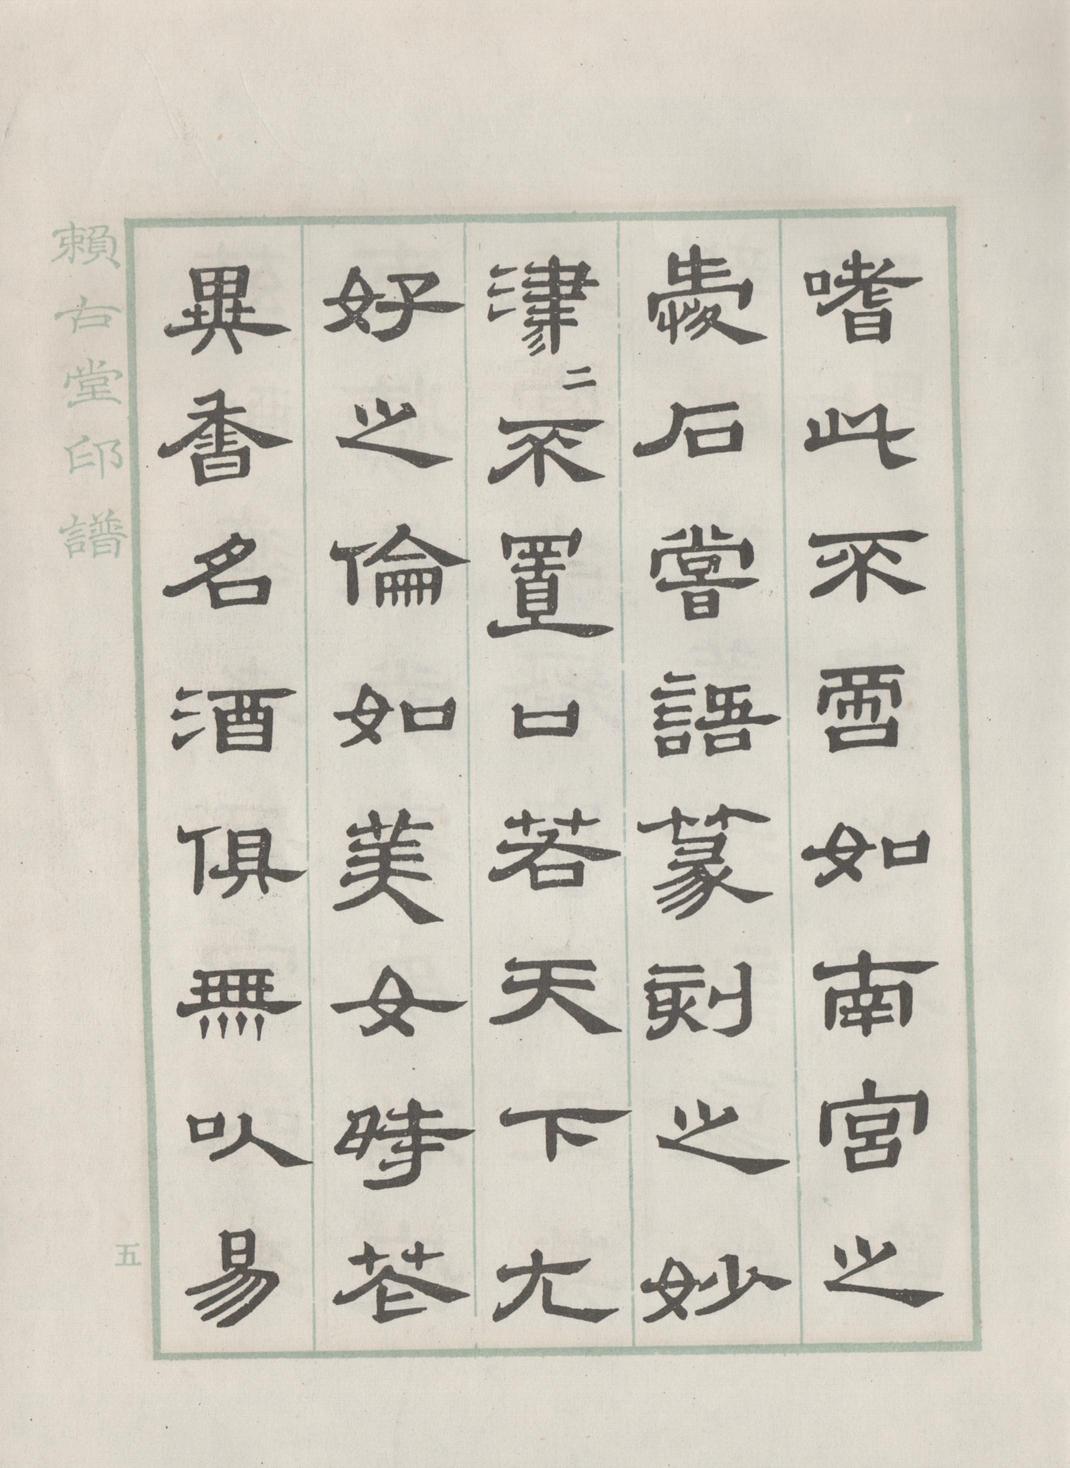 嗜此不啻如南宮之
愛石嘗語篆刻之妙
津二不置口若天下尤
好之倫如美女時花
異香名酒俱無以易
賴古堂印譜
五